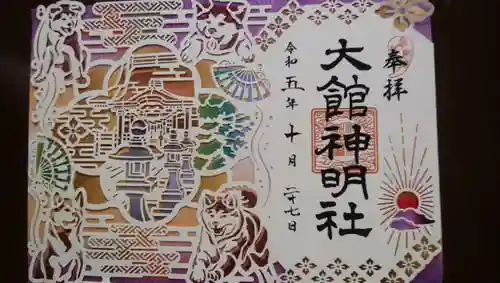 奉拝
大館神明社
令和五年十月二十七日